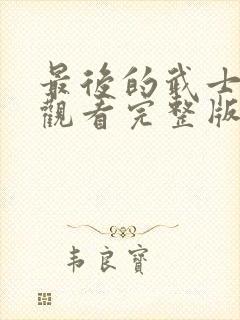 最後的武士
觀看完整版
韦良寶